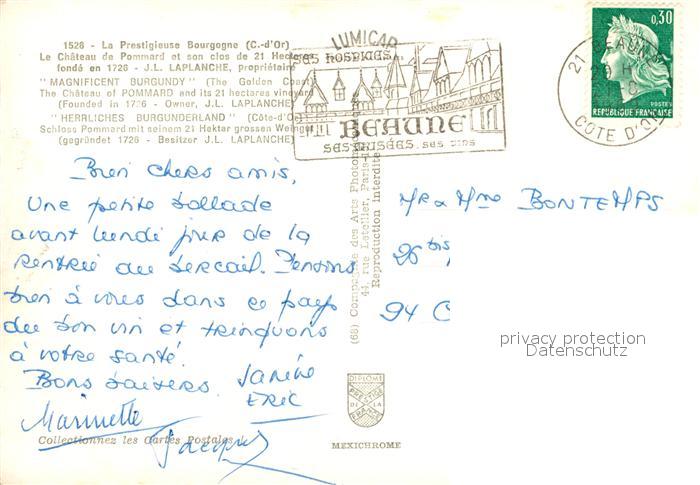 1526 - La Prestigieuse Bourgogne (C.-d'Or)
Le Château de Pommard et son clos de 21 Hectares
fondé en 1726 - J.L. LAPLANCHE, propriétaire
"MAGNIFICENT BURGUNDY" (The Golden Coast)
The Château of POMMARD and its 21 hectares vineyard
(Founded in 1726 - Owner, J.L. LAPLANCHE)
"HERRLICHES BURGUNDERLAND" (Côte-d'Or)
Schloss Pommard mit seinem 21 Hektar grossen Weingut
(gegründet 1726 - Besitzer J.L. LAPLANCHE)
LUMICAP
SES HOSPICES
BEAUNE
SES MUSÉES, SES VINS
21 BEAUNE
CÔTE D'OR
0,30
POSTES
REPUBLIQUE FRANÇAISE
Bien chers amis,
Une petite ballade
avant lundi jour de la
rentrée au bercail. Pensons
bien à vous dans ce pays
du bon vin et trinquons
à votre santé.
Bons baisers. Janine
ERIC
Marinette
Jacques
(68) Compagnie des Arts Photomécaniques
44, rue Letellier, Paris-15
Reproduction Interdite
Mr & Mme BONTEMPS
26 bis,
94 C
privacy protection
Datenschutz
DIPLOME
PRESTIGE
DE LA
FRANCE
Collectionnez les Cartes Postales !
MEXICHROME